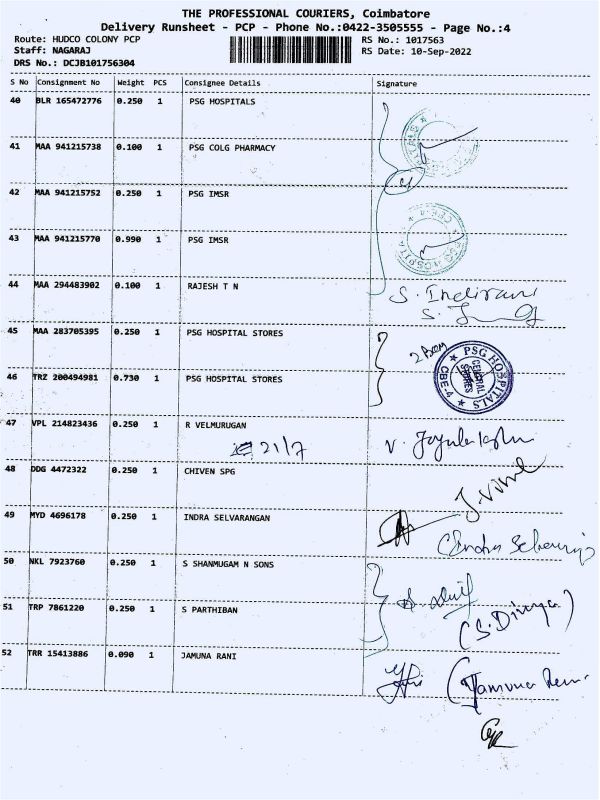 THE PROFESSIONAL COURIERS, Coimbatore
Delivery Runsheet - PCP - Phone No.:0422-3505555 - Page No.:4
Route: HUDCO COLONY PCP RS No.: 1017563
Staff: NAGARAJ RS Date: 10-Sep-2022
DRS No.: DCJB101756304
S No Consignment No Weight PCS Consignee Details Signature
40 BLR 165472776 0.250 1 PSG HOSPITALS
41 MAA 941215738 0.100 1 PSG COLG PHARMACY
42 MAA 941215752 0.250 1 PSG IMSR
43 MAA 941215770 0.990 1 PSG IMSR
44 MAA 294483902 0.100 1 RAJESH T N
S. Indirani
45 MAA 283705395 0.250 1 PSG HOSPITAL STORES
46 TRZ 200494981 0.730 1 PSG HOSPITAL STORES
PSG HOSPITALS CBE-4
CENTRAL STORES
47 VPL 214823436 0.250 1 R VELMURUGAN
21/7
48 DDG 4472322 0.250 1 CHIVEN SPG
49 MYD 4696178 0.250 1 INDRA SELVARANGAN
50 NKL 7923760 0.250 1 S SHANMUGAM N SONS
51 TRP 7861220 0.250 1 S PARTHIBAN
(S. Divya)
52 TRR 15413886 0.090 1 JAMUNA RANI